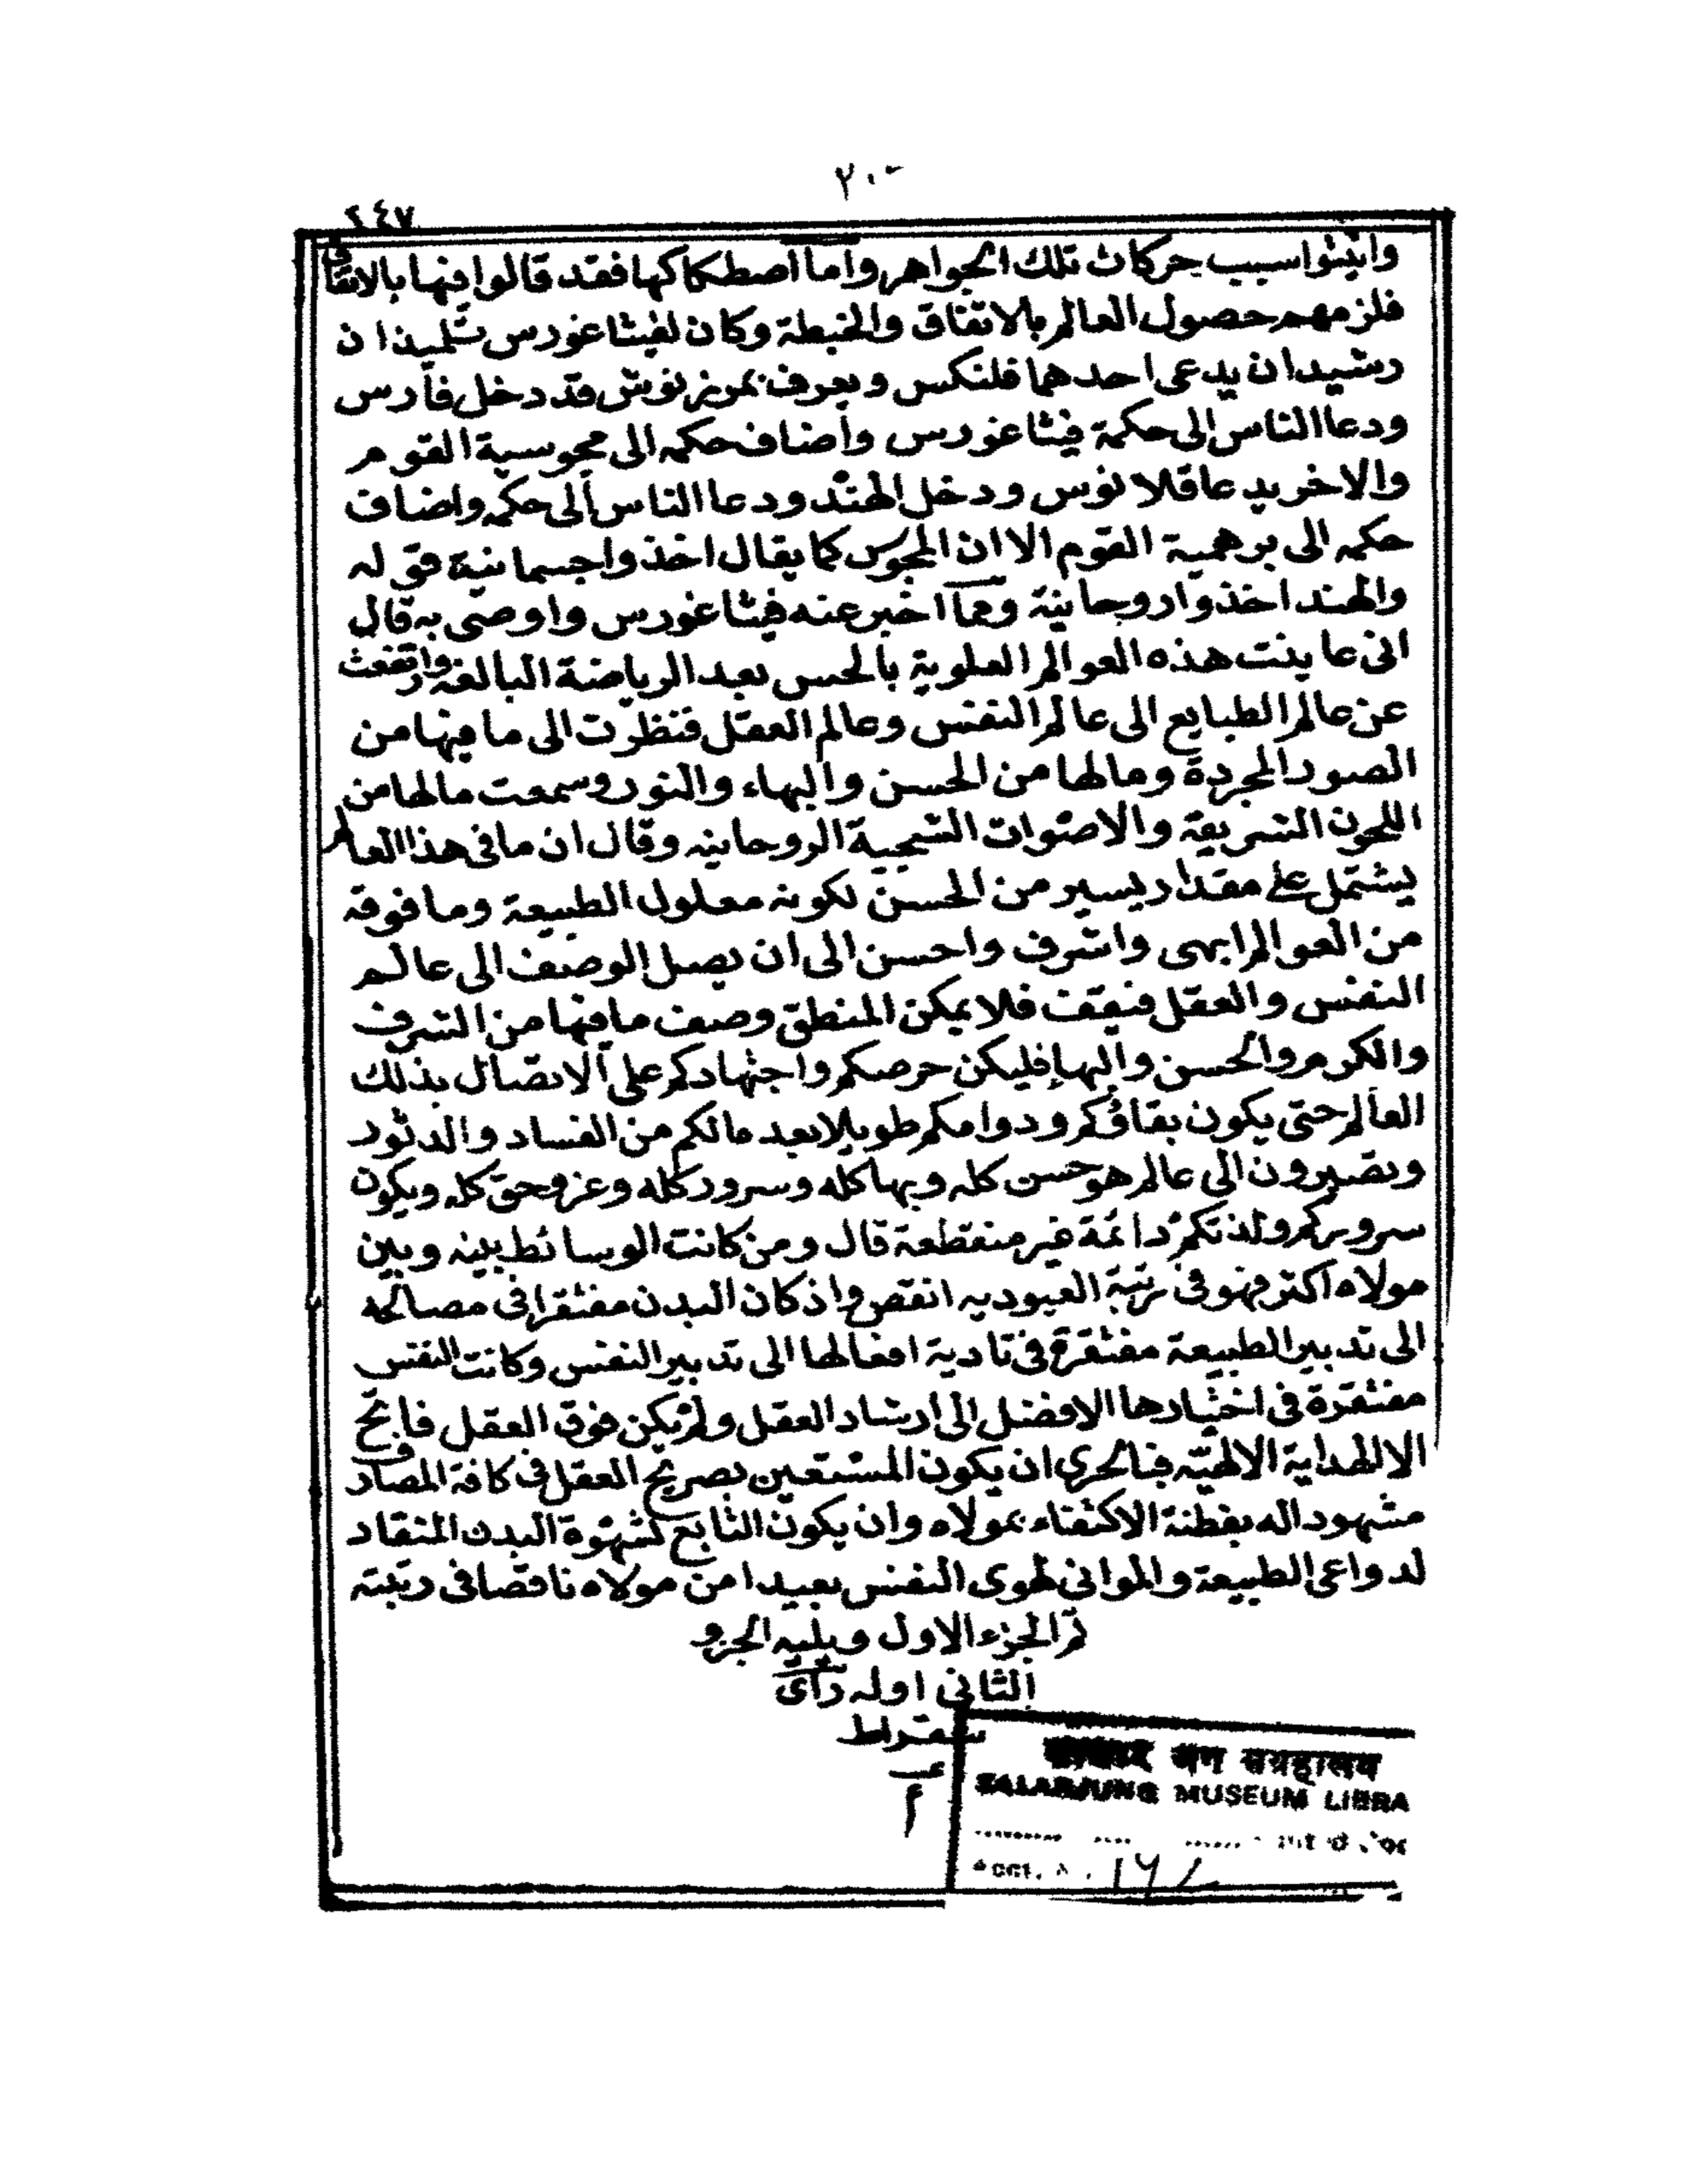 ٢٠٠
٢٤٧
واثبتوا سبب حركات تلك الجواهر واما اصطكاكها فقد قالوا فيها بالاتفاق
فلزمهم حصول العالم بالاتفاق والخبطة وكان لفيثاغورس تلميذان
رشيدان يدعى احدهما فلنكس ويعرف بمرزنوش قد دخل فارس
ودعا الناس الى حكمة فيثاغورس واضاف حكمه الى مجوسية القوم
والاخر يدعا قلانوس ودخل الهند ودعا الناس الى حكمه واضاف
حكمه الى برهمية القوم الا ان المجوس كما يقال اخذوا جسمانية قوله
والهند اخذوا روحانية ومما اخبر عنه فيثاغورس واوصى به قال
انى عاينت هذه العوالم العلوية بالحس بعد الرياضة البالغة وارتفعت
عن عالم الطبايع الى عالم النفس وعالم العقل فنظرت الى ما فيها من
الصور المجردة وما لها من الحسن والبهاء والنور وسمعت ما لها من
اللحون الشريفة والاصوات الشجية الروحانيه وقال ان ما فى هذا العالم
يشتمل على مقدار يسير من الحسن لكونه معلول الطبيعة وما فوقه
من العوالم ابهى واشرف واحسن الى ان يصل الوصف الى عالم
النفس والعقل فنيقف فلا يمكن المنطق وصف ما فيها من الشرف
والكرم والحسن والبها فليكن حرصكم واجتهادكم على الاتصال بذلك
العالم حتى يكون بقاؤكم ودوامكم طويلا بعد مالكم من الفساد والدثور
وتصيرون الى عالم هو حسن كله وبها كله وسرور كله وعز وحق كله ويكون
سروركم ولذتكم دائمة غير منقطعة قال ومن كانت الوسائط بينه وبين
مولاه اكثر فهو فى رتبة العبوديه انقص واذ كان البدن مفتقرا فى مصالحه
الى تدبير الطبيعة مفتقرة فى تادية افعالها الى تدبير النفس وكانت النفس
مفتقرة فى اختيارها الافضل الى ارشاد العقل ولم يكن فوق العقل فاتح
الا الهداية الالهيّه فبالحرى ان يكون المستعين بصريح العقل فى كافة المصارف
مشهودا له بفطنة الاكتفاء بمولاه وان يكون التابع لشهوة البدن المنقاد
لدواعى الطبيعة والموانى لهوى النفس بعيدا من مولاه ناقصا فى رتبته
تم الجزء الاول ويليه الجزو
الثانى اوله رأى
سقراط
सालारजंग संग्रहालय
SALARJUNG MUSEUM LIBRA